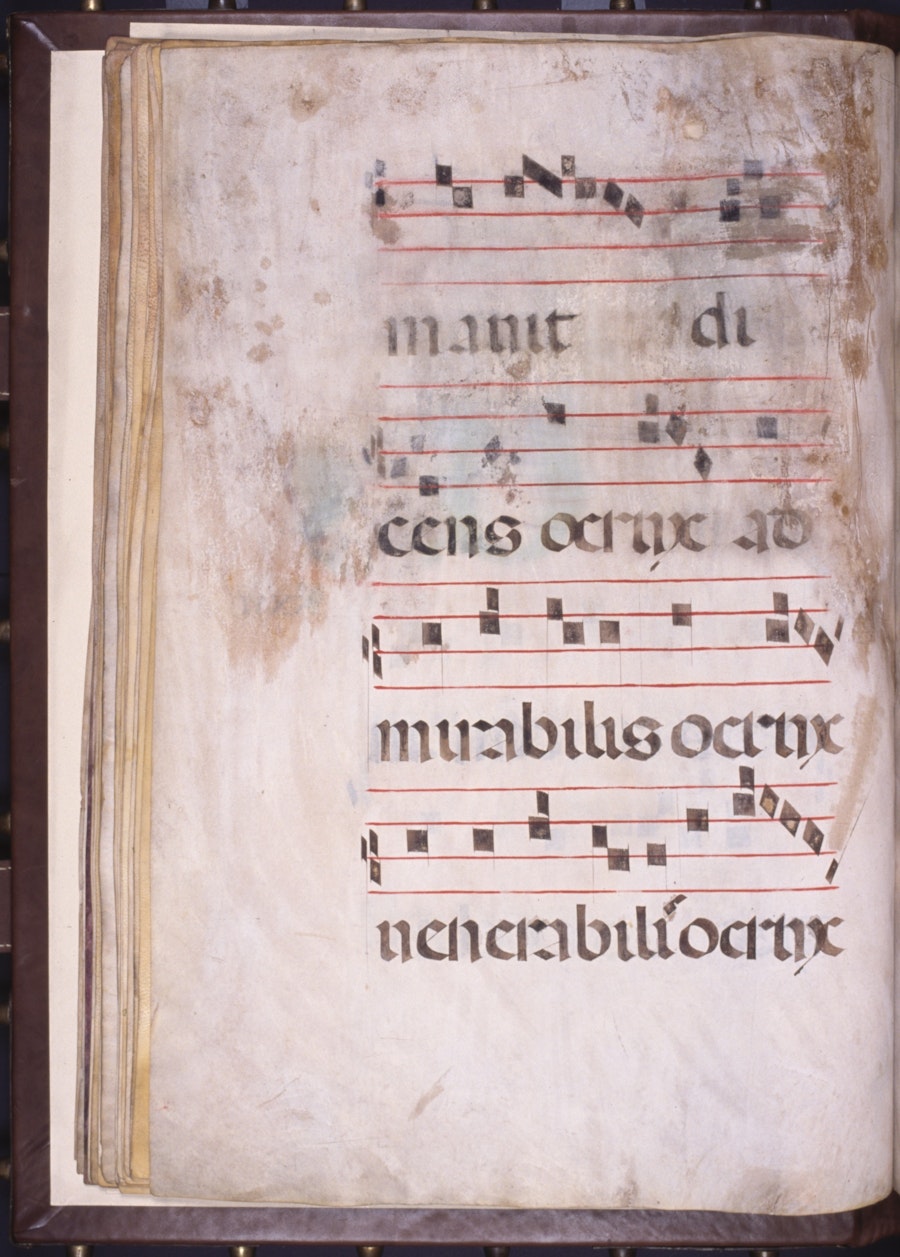 mauit di
cens o crux ad
mirabilis o crux
uenerabilis o crux